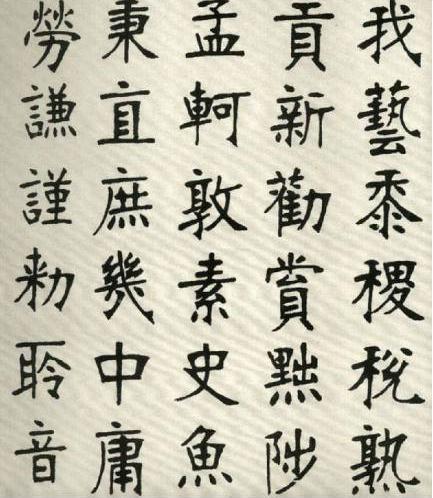 我藝黍稷稅熟
貢新勸賞黜陟
孟軻敦素史魚
秉直庶幾中庸
勞謙謹勑聆音